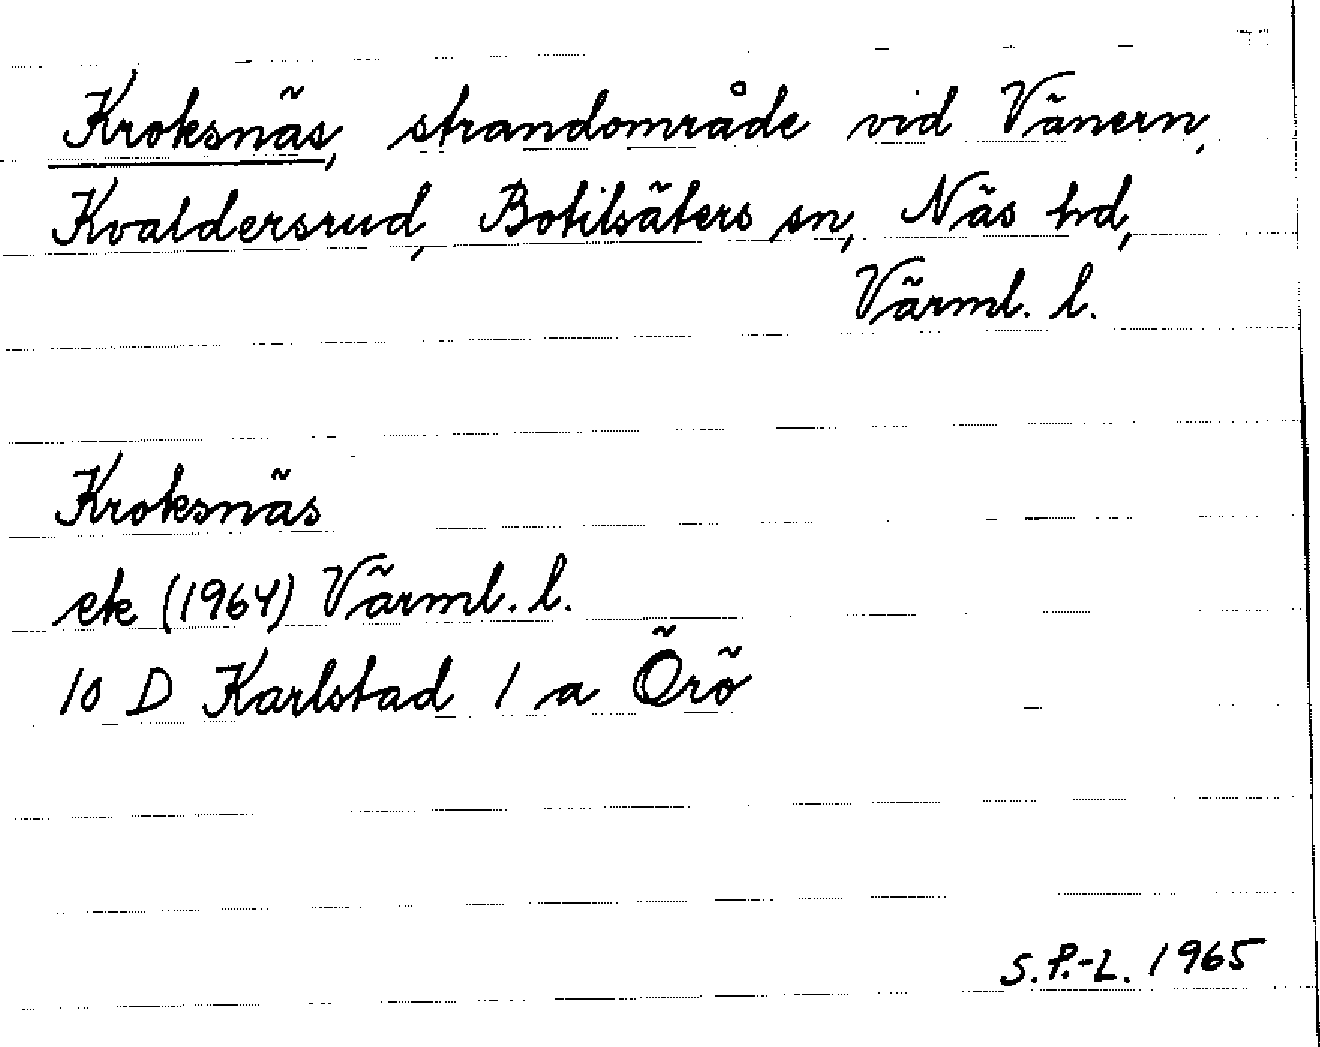 Kroksnäs, strandområde vid Vänern,
Kvaldersrud, Botilsäters sn, Näs hd,
Värml. l.
Kroksnäs
ek (1964) Värml. l.
10 D Karlstad 1 a Örö
S.P.-L. 1965